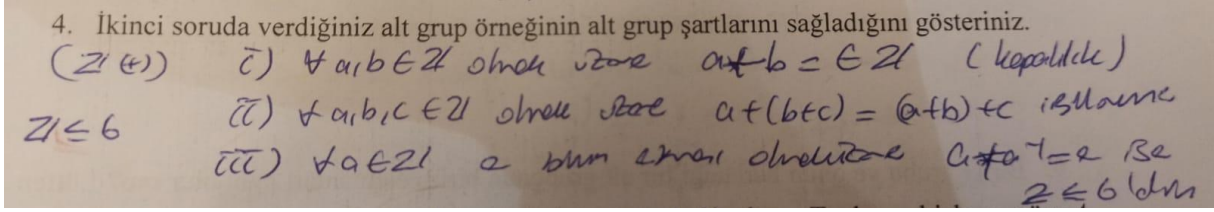 4. İkinci soruda verdiğiniz alt grup örneğinin alt grup şartlarını sağladığını gösteriniz.
(Z (+)) i) ∀ a,b ∈ Z olmak üzere a+b = ∈ Z (kapalılık)
Z ≤ 6 ii) ∀ a,b,c ∈ Z olmak üzere a+(b+c) = (a+b)+c
iii) ∀a ∈ Z e birim olmak üzere a+a⁻¹=e ise
Z ≤ 6